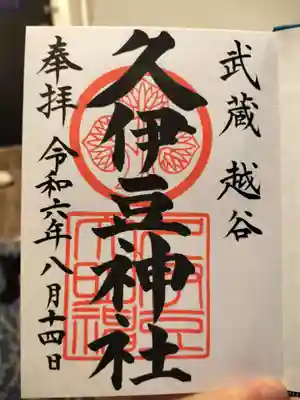 武蔵 越谷
久伊豆神社
奉拝 令和六年八月十四日